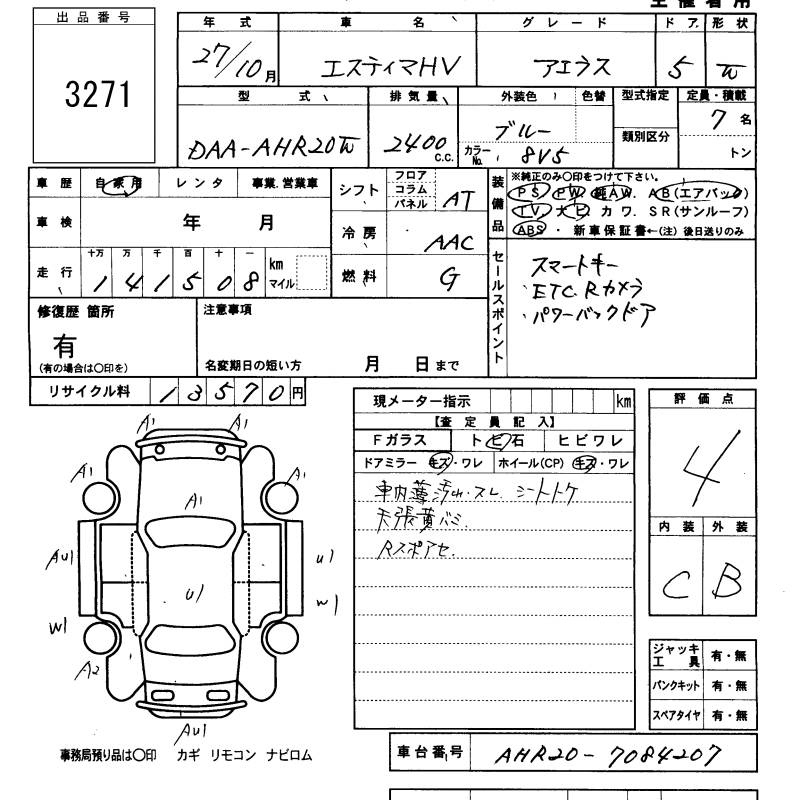 出品番号
3271
年式 車名 グレード ドア 形状
27/10月 エスティマHV アエラス 5 W
型式 排気量 外装色 色替 型式指定 定員・積載
DAA-AHR20W 2400c.c. ブルー 類別区分 7名
カラーNo. 8V5 トン
車歴 自家用 レンタ 事業.営業車
車検 年 月
十万 万 千 百 十 一
走行 141508 km マイル
シフト フロア コラム パネル AT
冷房 AAC
燃料 G
装備品
※純正のみ〇印をつけて下さい。
PS PW 純AW. AB(エアバッグ)
TV. ナビ カワ. SR(サンルーフ)
ABS ・ 新車保証書←(注) 後日送りのみ
セールスポイント
スマートキー
・ETC. Rカメラ
・パワーバックドア
修復歴 箇所
有
(有の場合は〇印を)
注意事項
名変期日の短い方 月 日まで
リサイクル料 13570円
A1 A1
A1 A1
A1
AU1 U1 U1
W1 W1
A2
AU1
事務局預り品は〇印 カギ リモコン ナビロム
現メーター指示 km
【査定員記入】
Fガラス トビ石 ヒビワレ
ドアミラー キズ・ワレ ホイール(CP) キズ・ワレ
車内薄汚れ・スレ シートトケ
天張黄バミ
Rスポアセ.
評価点
4
内装 外装
C B
ジャッキ工具 有・無
パンクキット 有・無
スペアタイヤ 有・無
車台番号 AHR20-7084207